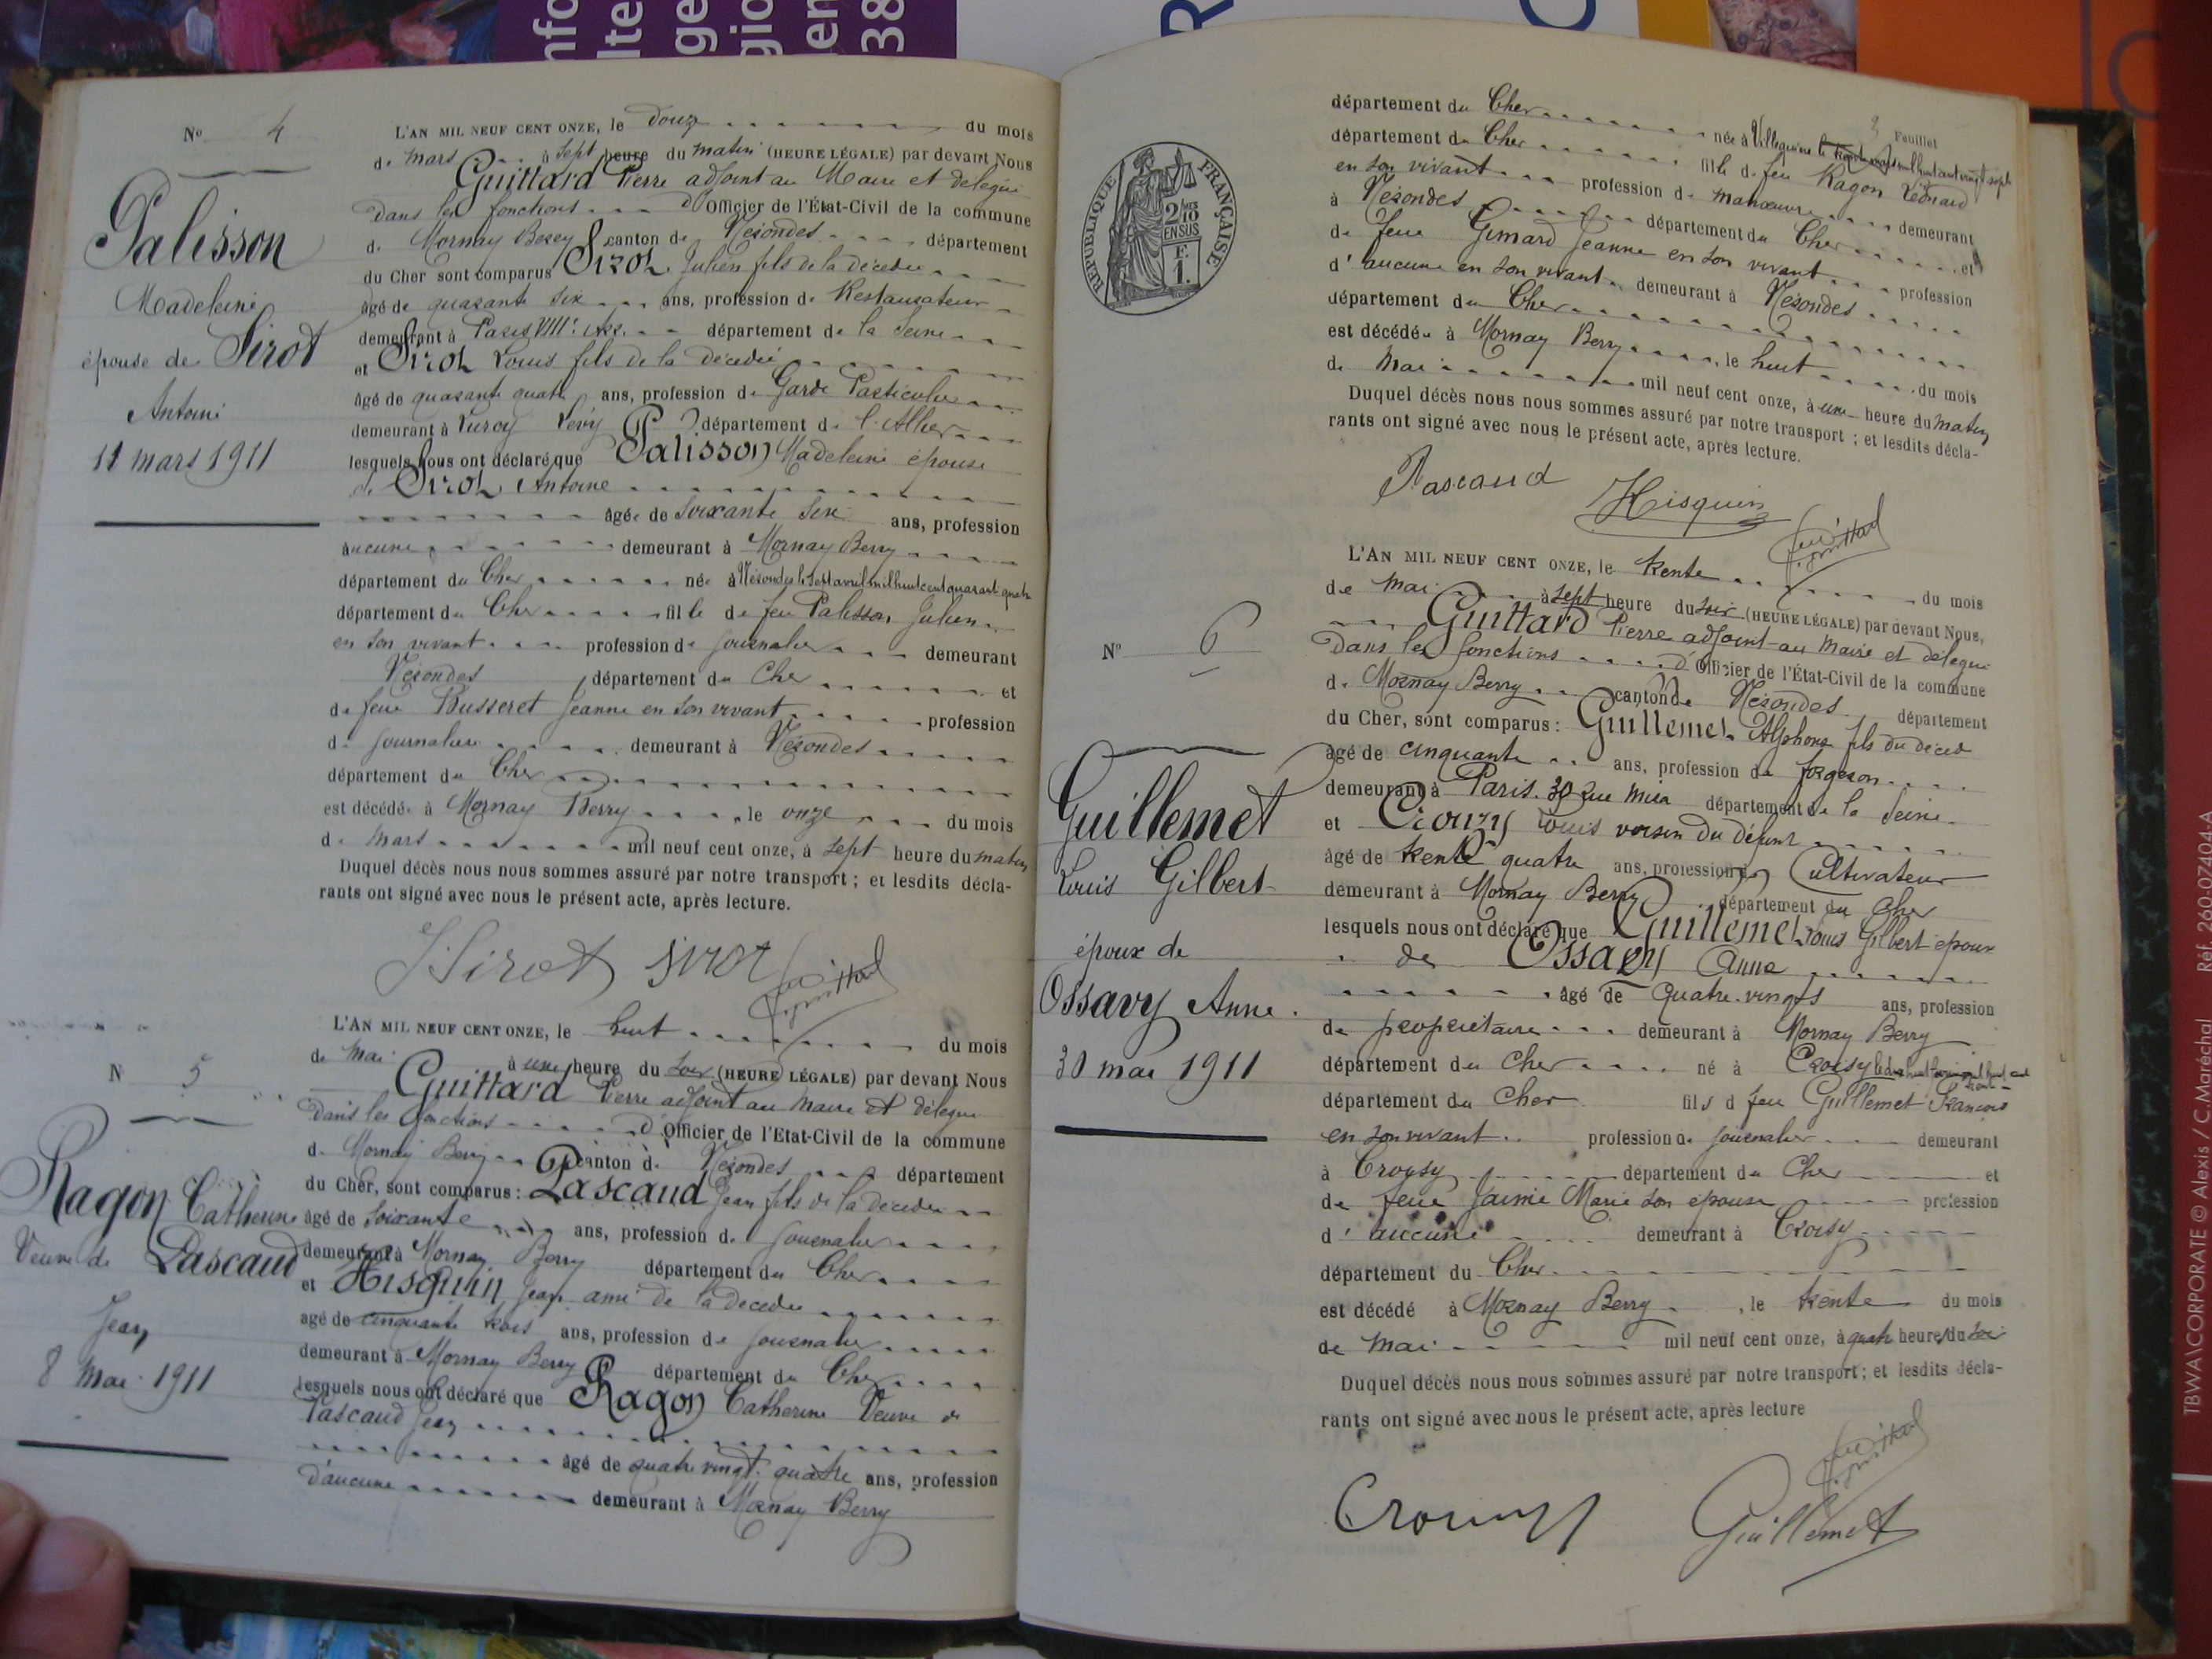 No 4
Palisson
Madeleine
épouse de Sirot
Antoine
11 mars 1911
L'AN MIL NEUF CENT ONZE, le douze du mois
de mars à sept heure du matin (HEURE LÉGALE) par devant Nous
Guittard Pierre adjoint au Maire et délégué
dans les fonctions d'Officier de l'État-Civil de la commune
de Mornay Berry canton de Nérondes département
du Cher sont comparus Sirot Julien fils de la décédée
âgé de quarante six ans, profession de Restaurateur
demeurant à Paris VIIIe Arr. département de la Seine
et Sirot Louis fils de la décédée
âgé de quarante quatre ans, profession de Garde Particulier
demeurant à Lurcy Lévy département de l'Allier
lesquels nous ont déclaré que Palisson Madeleine épouse
de Sirot Antoine
âgée de soixante six ans, profession
aucune demeurant à Mornay Berry
département du Cher née à Nérondes le sept avril mil huit cent quarante quatre
département du Cher fille de feu Palisson Julien
en son vivant profession de journalier demeurant
Nérondes département du Cher et
de feue Busseret Jeanne en son vivant profession
de journalière demeurant à Nérondes
département du Cher
est décédée à Mornay Berry, le onze du mois
de mars mil neuf cent onze, à sept heure du matin
Duquel décès nous nous sommes assuré par notre transport ; et lesdits décla-
rants ont signé avec nous le présent acte, après lecture.
J Sirot Sirot Guittard
N 5
Ragon Catherine
Veuve de Pascaud
Jean
8 mai 1911
L'AN MIL NEUF CENT ONZE, le huit du mois
de mai à une heure du soir (HEURE LÉGALE) par devant Nous
Guittard Pierre adjoint au maire et délégué
dans les fonctions d'Officier de l'Etat-Civil de la commune
de Mornay Berry canton de Nérondes département
du Cher, sont comparus : Pascaud Jean fils de la décédée
âgé de soixante ans, profession de journalier
demeurant à Mornay Berry département du Cher
et Hisquin Jean ami de la décédée
âgé de cinquante trois ans, profession de journalier
demeurant à Mornay Berry département du Cher
lesquels nous ont déclaré que Ragon Catherine Veuve de
Pascaud Jean
âgé de quatre vingt quatre ans, profession
d'aucune demeurant à Mornay Berry
3 Feuillet
RÉPUBLIQUE FRANÇAISE
2/10 EN SUS
E. 1.
département du Cher née à Villequiers mil huit cent vingt sept
département du Cher fille de feu Ragon Léonard
en son vivant profession de manœuvre demeurant
à Nérondes département du Cher et
de feue Gimard Jeanne en son vivant profession
d'aucune en son vivant demeurant à Nérondes
département du Cher
est décédée à Mornay Berry, le huit du mois
de Mai mil neuf cent onze, à une heure du matin
Duquel décès nous nous sommes assuré par notre transport ; et lesdits décla-
rants ont signé avec nous le présent acte, après lecture.
Pascaud Hisquin Guittard
No 6
Guillemet
Louis Gilbert
époux de
Ossavy Anne.
30 mai 1911
L'AN MIL NEUF CENT ONZE, le trente du mois
de mai à sept heure du soir (HEURE LÉGALE) par devant Nous,
Guittard Pierre adjoint au Maire et délégué
dans les fonctions d'Officier de l'État-Civil de la commune
de Mornay Berry canton de Nérondes département
du Cher, sont comparus : Guillemet Alphonse fils du décédé
âgé de cinquante ans, profession de forgeron
demeurant à Paris. 30 Rue département de la Seine
et Crouzy Louis voisin du défunt
âgé de trente quatre ans, profession de Cultivateur
demeurant à Mornay Berry département du Cher
lesquels nous ont déclaré que Guillemet Louis Gilbert époux
de Ossavy Anne
âgé de Quatre-vingts ans, profession
de propriétaire demeurant à Mornay Berry
département du Cher né à Croisy
département du Cher fils d feu Guillemet François
en son vivant profession de journalier demeurant
à Croisy département du Cher et
de feue Jaimie Marie son épouse profession
d'aucune demeurant à Croisy
département du Cher
est décédé à Mornay Berry, le trente du mois
de mai mil neuf cent onze, à quatre heures du soir
Duquel décès nous nous sommes assuré par notre transport ; et lesdits décla-
rants ont signé avec nous le présent acte, après lecture
Crouzy Guillemet Guittard
TBWA\CORPORATE © Alexis / C. Maréchal Réf. 260-07404-A